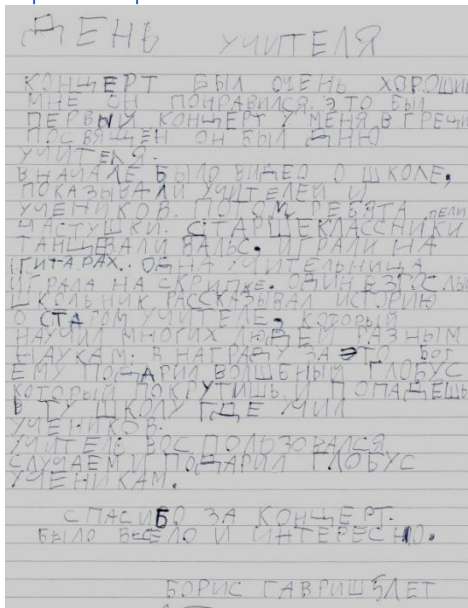 ДЕНЬ УЧИТЕЛЯ
КОНЦЕРТ БЫЛ ОЧЕНЬ ХОРОШИЙ
МНЕ ОН ПОНРАВИЛСЯ. ЭТО БЫЛ
ПЕРВЫЙ КОНЦЕРТ У МЕНЯ В ГРЕЦИ
ПОСВЯЩЕН ОН БЫЛ ДНЮ
УЧИТЕЛЯ.
ВНАЧАЛЕ БЫЛО ВИДЕО О ШКОЛЕ,
ПОКАЗЫВАЛИ УЧИТЕЛЕЙ И
УЧЕНИКОВ. ПОТОМ РЕБЯТА ПЕЛИ
ЧАСТУШКИ. СТАРШЕКЛАССНИКИ
ТАНЦЕВАЛИ ВАЛЬС, ИГРАЛИ НА
ГИТАРАХ. ОДНА УЧИТЕЛЬНИЦА
ИГРАЛА НА СКРИПКЕ. ОДИН ВЗРОСЛЫ
ШКОЛЬНИК РАССКАЗЫВАЛ ИСТОРИЮ
О СТАРОМ УЧИТЕЛЕ, КОТОРЫЙ
НАУЧИЛ МНОГИХ ЛЮДЕЙ РАЗНЫМ
НАУКАМ. В НАГРАДУ ЗА ЭТО БОГ
ЕМУ ПОДАРИЛ ВОЛШЕБНЫЙ ГЛОБУС
КОТОРЫЙ ПОКРУТИШЬ И ПОПАДЕШЬ
В ТУ ШКОЛУ ГДЕ УЧИЛ
УЧЕНИКОВ.
УЧИТЕЛЬ ВОСПОЛЬЗОВАЛСЯ
СЛУЧАЕМ И ПОДАРИЛ ГЛОБУС
УЧЕНИКАМ.
СПАСИБО ЗА КОНЦЕРТ.
БЫЛО ВЕСЕЛО И ИНТЕРЕСНО.
БОРИС ГАВРИШ 5ЛЕТ